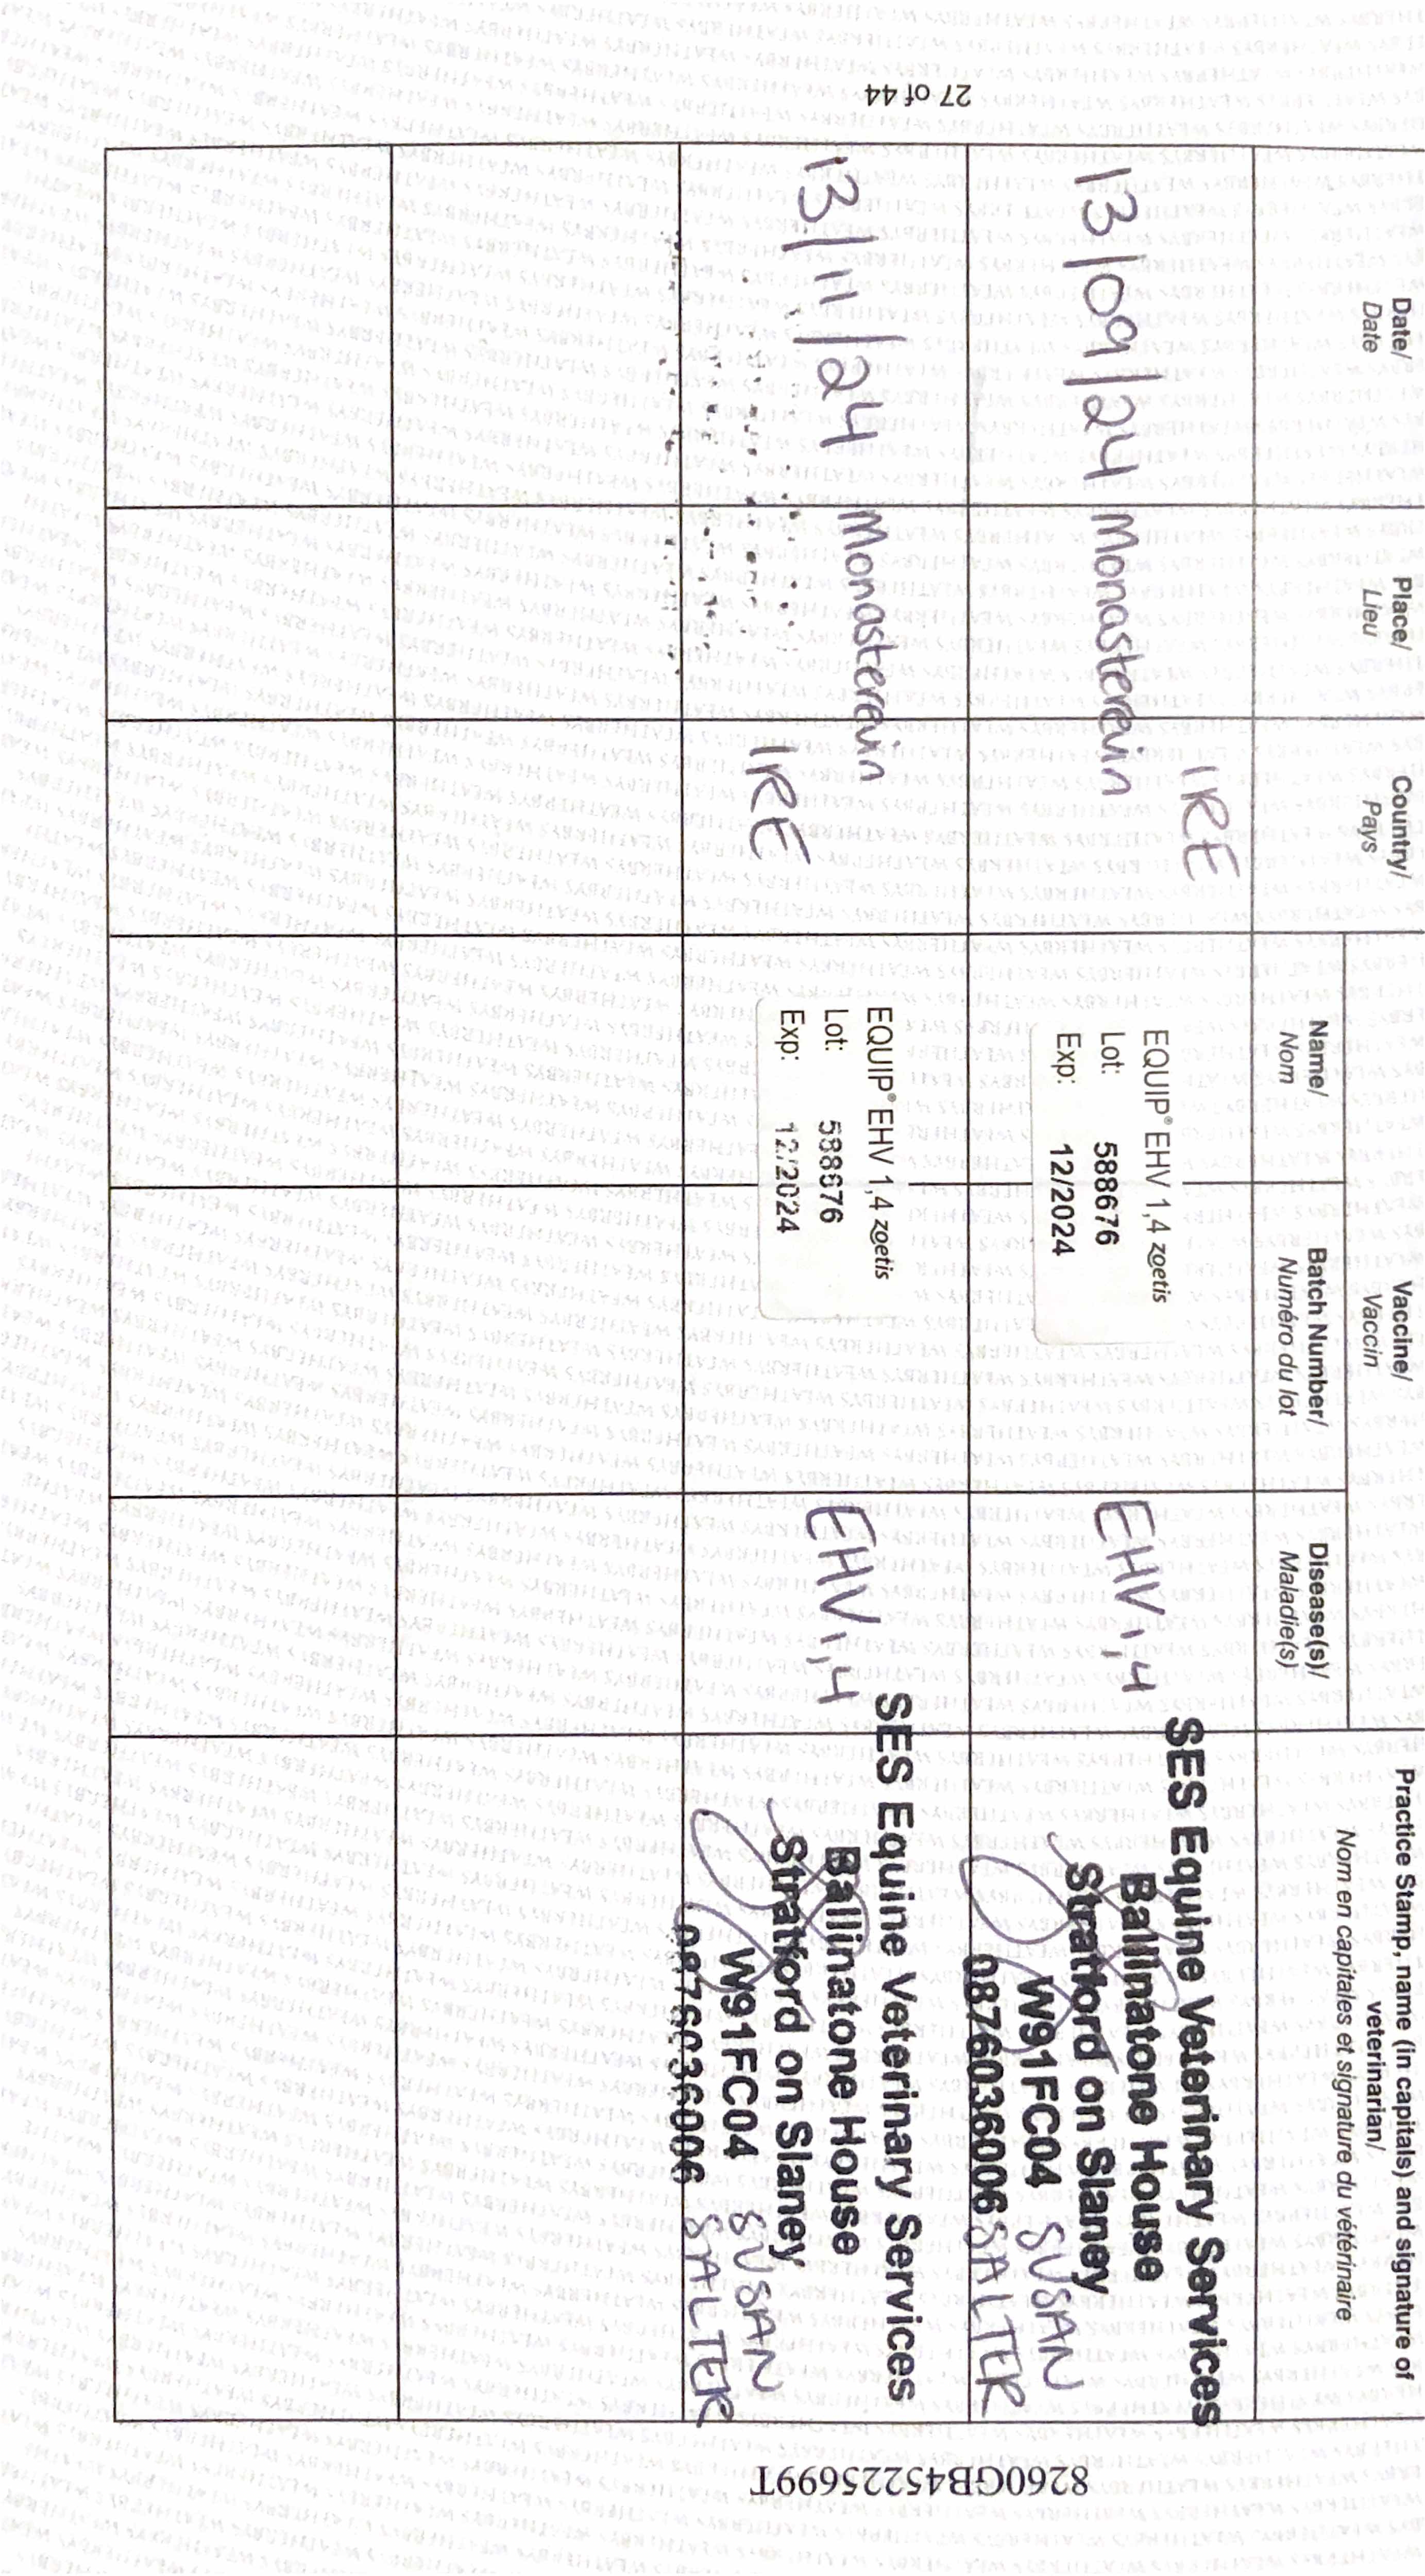 Date/
Date
Place/
Lieu
Country/
Pays
Vaccine/
Vaccin
Name/
Nom
Batch Number/
Numéro du lot
Disease(s)/
Maladie(s)
Practice Stamp, name (in capitals) and signature of
veterinarian/
Nom en capitales et signature du vétérinaire
13/09/24
Monasterevin
IRE
EQUIP® EHV 1,4 zoetis
Lot: 588676
Exp: 12/2024
EHV 1,4
SES Equine Veterinary Services
Ballinatone House
Stratford on Slaney
W91FC04
0876036006
SUSAN
SALTER
13/11/24
Monasterevin
IRE
EQUIP® EHV 1,4 zoetis
Lot: 588676
Exp: 12/2024
EHV 1,4
SES Equine Veterinary Services
Ballinatone House
Stratford on Slaney
W91FC04
0876036006
SUSAN
SALTER
27 of 44
8260GB45225699T